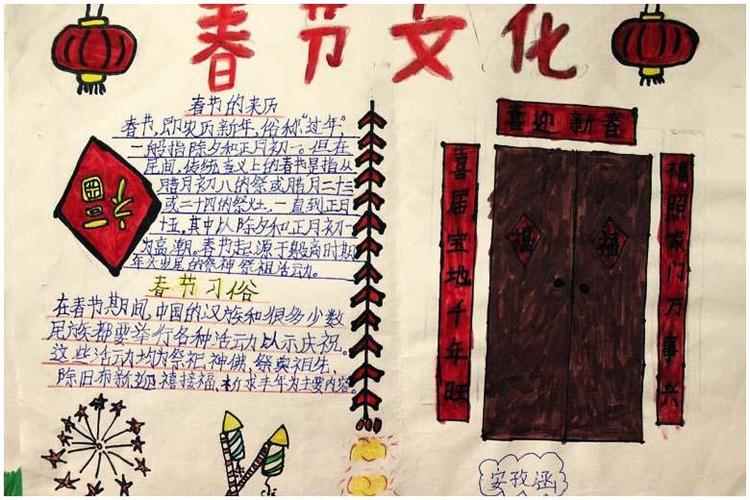 春节文化
春节的来历
春节,即农历新年,俗称“过年”,
一般指除夕和正月初一。但在
民间,传统意义上的春节是指从
腊月初八的腊祭或腊月二十三
或二十四的祭灶,一直到正月
十五,其中以除夕和正月初一
为高潮。春节起源于殷商时期
年头岁尾的祭神祭祖活动。
春节习俗
在春节期间,中国的汉族和很多少数
民族都要举行各种活动以示庆祝。
这些活动均为祭祀神佛,祭奠祖先、
除旧布新迎禧接福、祈求丰年为主要内容。
福
喜迎新春
喜居宝地千年旺
福照家门万事兴
福
福
安孜涵